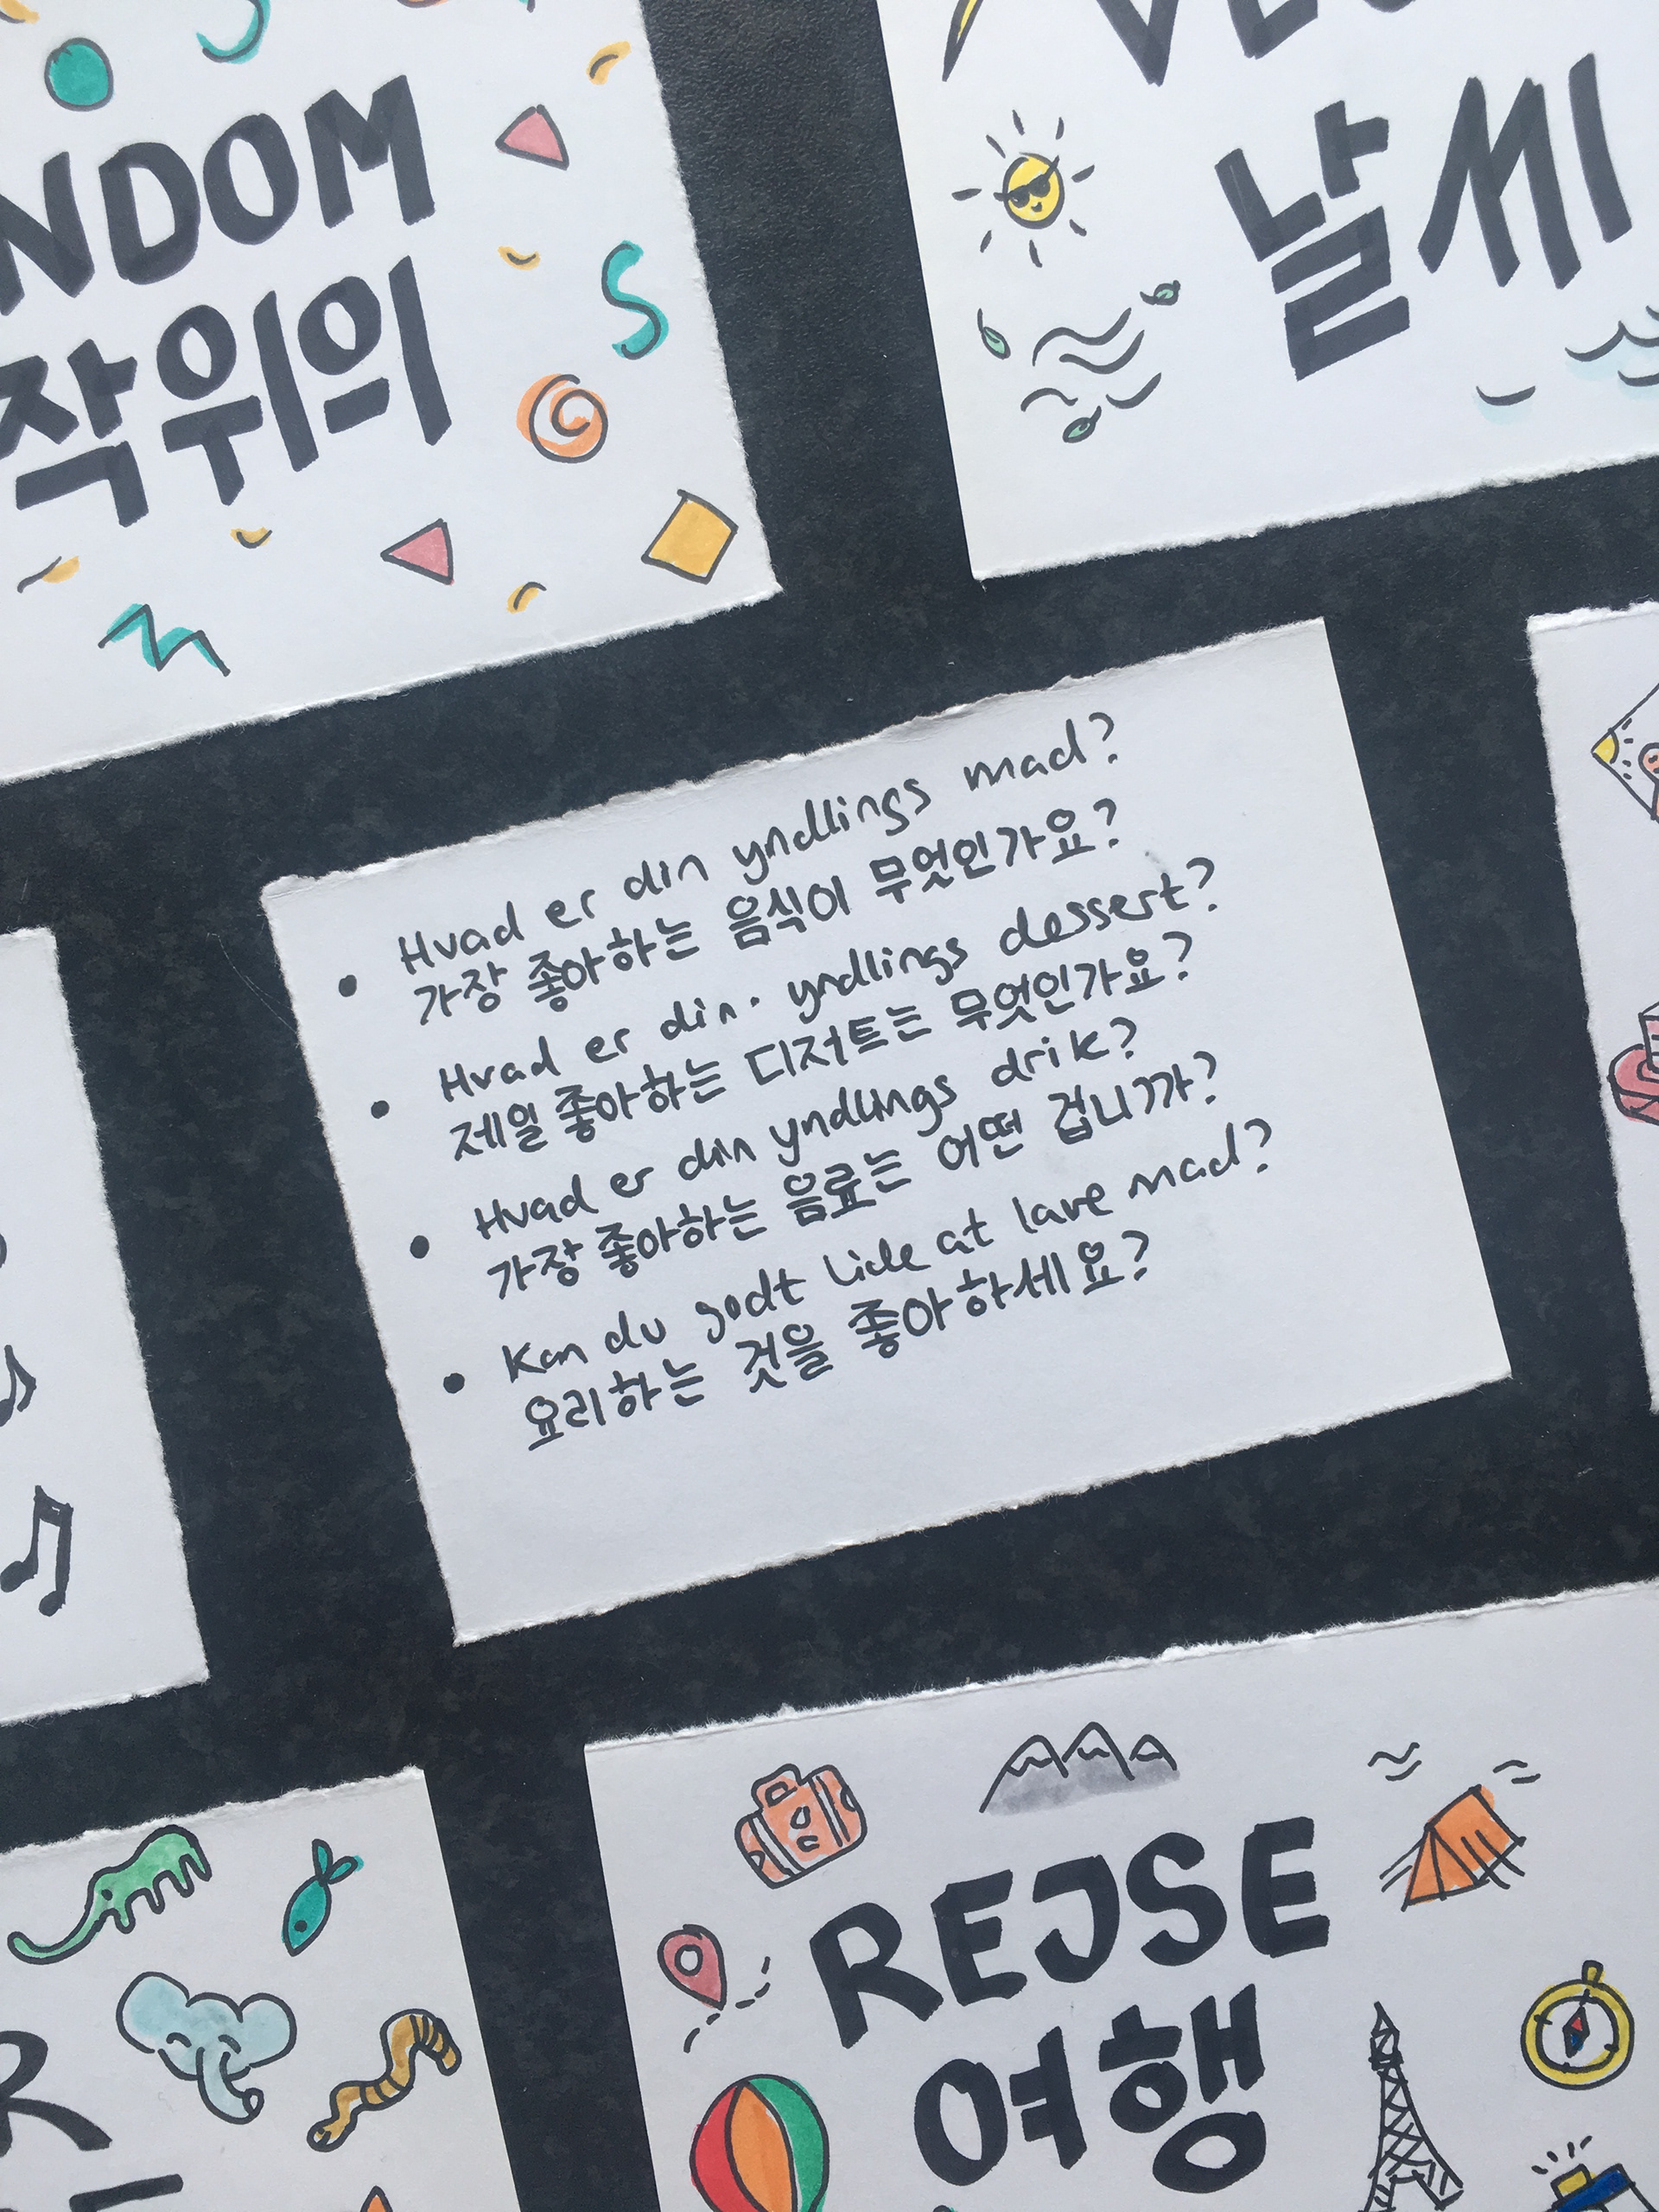 NDOM
작위의
날씨
• Hvad er din yndlings mad?
가장 좋아하는 음식이 무엇인가요?
• Hvad er din. yndlings dessert?
제일 좋아하는 디저트는 무엇인가요?
• Hvad er din yndlings drik?
가장 좋아하는 음료는 어떤 겁니까?
• Kan du godt lide at lave mad?
요리하는 것을 좋아하세요?
REJSE
여행
R